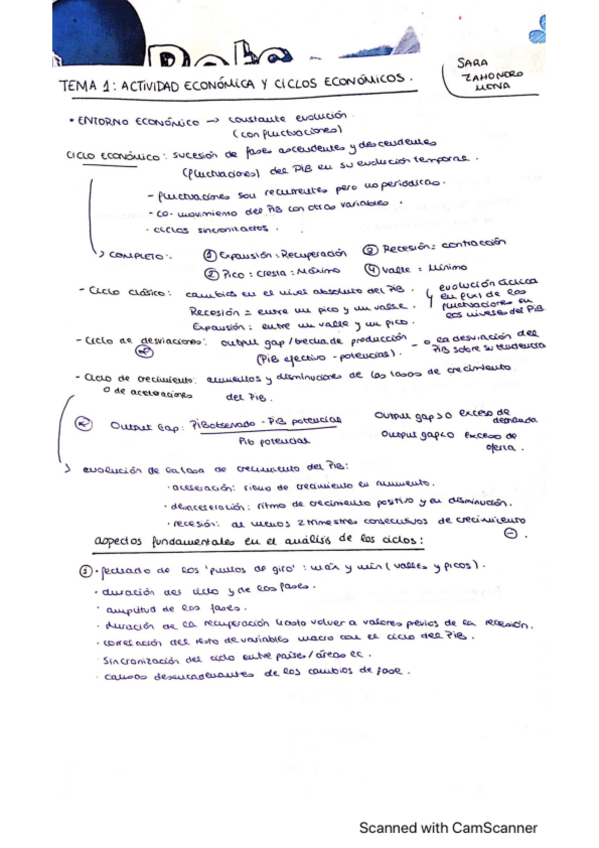 SARA
ZAHONERO
MENA
TEMA 1: ACTIVIDAD ECONÓMICA Y CICLOS ECONÓMICOS.
• ENTORNO ECONÓMICO → constante evolución.
(con fluctuaciones)
CICLO ECONÓMICO: sucesión de fases ascendentes y descendentes
(fluctuaciones) del PIB en su evolución temporal.
- fluctuaciones son recurrentes pero no periódicas.
- co-movimiento del PIB con otras variables.
- ciclos sincronizados.
COMPLETO: ① Expansión: Recuperación ③ Recesión: contracción
② Pico: Cresta: Máximo ④ Valle: Mínimo
- Ciclo clásico: cambios en el nivel absoluto del PIB.
Recesión = entre un pico y un valle.
Expansión: entre un valle y un pico.
evolución cíclica
en fun de las
fluctuaciones en
los niveles del PIB.
- Ciclo de desviaciones: output gap / brecha de producción
(PIB efectivo - potencial). → la desviación del
PIB sobre su tendencia
- Ciclo de crecimiento: aumentos y disminuciones de las tasas de crecimiento
o de aceleraciones del PIB.
Output Gap: PIB observado - PIB potencial
Pib potencial
Output gap > 0 exceso de
demanda
Output gap < 0 exceso de
oferta.
evolución de la tasa de crecimiento del PIB:
· aceleración: ritmo de crecimiento en aumento.
· desaceleración: ritmo de crecimiento positivo y en disminución.
· recesión: al menos 2 trimestres consecutivos de crecimiento
⊖.
aspectos fundamentales en el análisis de los ciclos:
① · fechado de los 'puntos de giro': máx y mín (valles y picos).
· duración del ciclo y de las fases.
· amplitud de las fases.
· duración de la recuperación hasta volver a valores previos de la recesión.
· correlación del resto de variables macro con el ciclo del PIB.
· Sincronización del ciclo entre países/áreas ec.
· causas desencadenantes de los cambios de fase.
Scanned with CamScanner